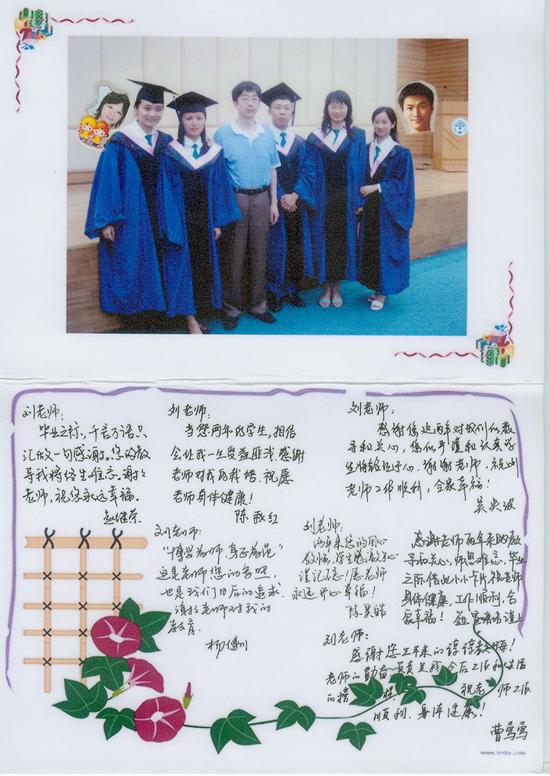 刘老师:
毕业之际,千言万语只
汇做一句感谢。您的教
导我将终生难忘。谢谢
老师,祝您永远幸福。
刘老师:
当您两年的学生,相信
会让我一生受益匪浅感谢
老师对我的栽培,祝愿
老师身体健康!
陈
红
刘老师:
感谢您这两年对我们的教
导和关心,您的严谨和认真学
生将铭记于心。谢谢老师,祝
老师工作顺利,全家幸福!
吴
刘老师:
"博学为师,身正为范"
这是老师您的写照,
也是我们日后的追求
老师对我的
教育.
杨
刘老师:
两年来您的用心
教诲,学生感激不尽
谨记在心!愿老师
永远开心幸福!
陈
感谢老师两年来的教
导和关心,师恩难忘,毕业
之际借此小小卡片祝老师
身体健康,工作顺利,合
家幸福!
刘老师:
感谢您三年来的谆谆教诲!
老师的勤奋
今后工作和生活
的榜
祝老师工作
顺利,身体健康!
曹莺莺